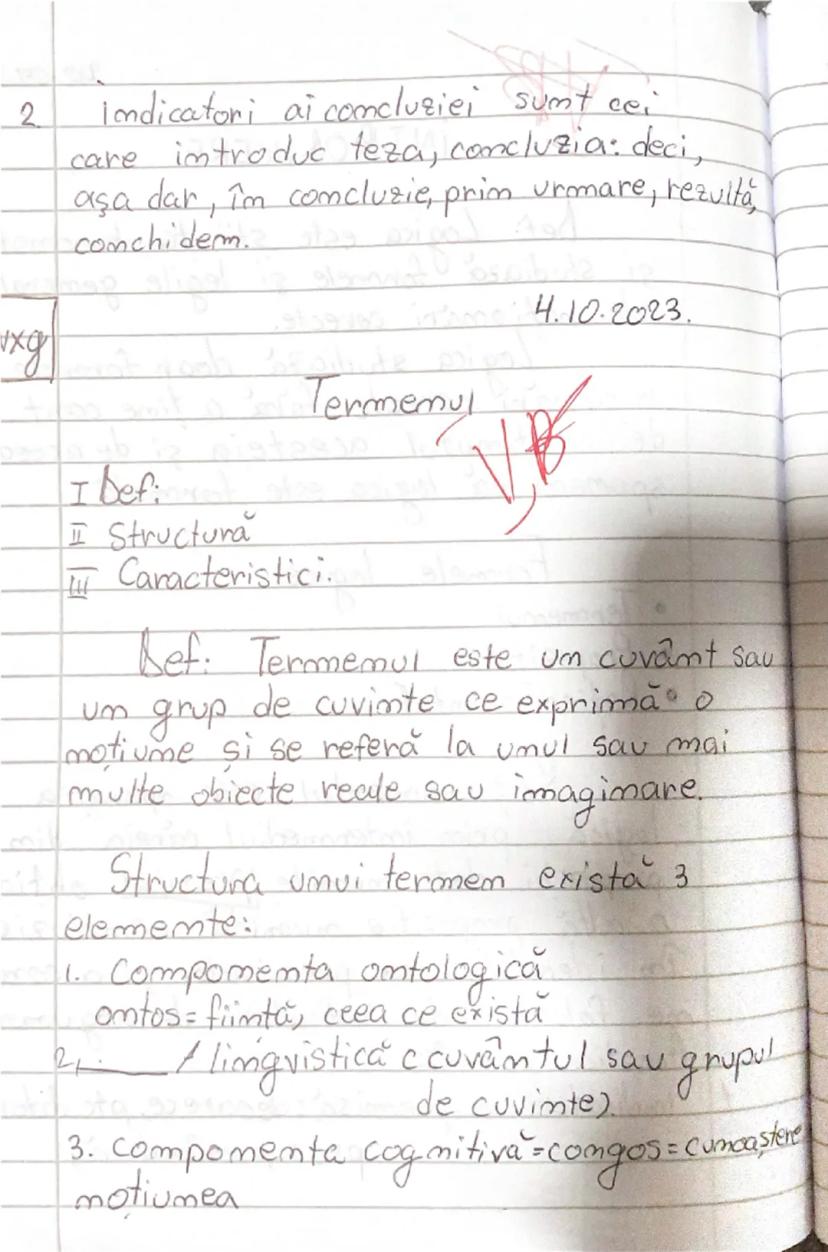 2 indicatori ai concluziei sunt cei
care introduc teza, concluzia: deci,
așa dar, în concluzie, prin urmare, rezultă,
conchidem.
4.10.2023.
vxg
Termenul
V,B
I Def:
II Structură
III Caracteristici.
Def: Termenul este un cuvânt sau
un grup de cuvinte ce exprimă o
noțiune și se referă la unul sau mai
multe obiecte reale sau imaginare.
Structura unui termen există 3
elemente:
1. Componenta ontologică
ontos = ființă, ceea ce există
2. _____ / lingvistică (cuvântul sau grupul
de cuvinte)
3. Componenta cognitivă = congos = cunoaștere
noțiunea